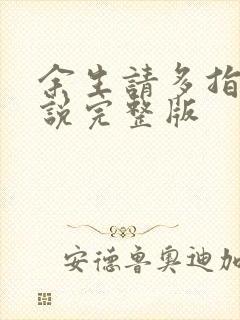 余生請多指
說完整版
安德魯奧迪加